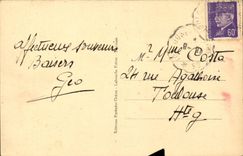 affectueux souvenirs
Baisers
Geo
Mr Mme Costa
24 rue Agathoise
Toulouse
Hte g
60